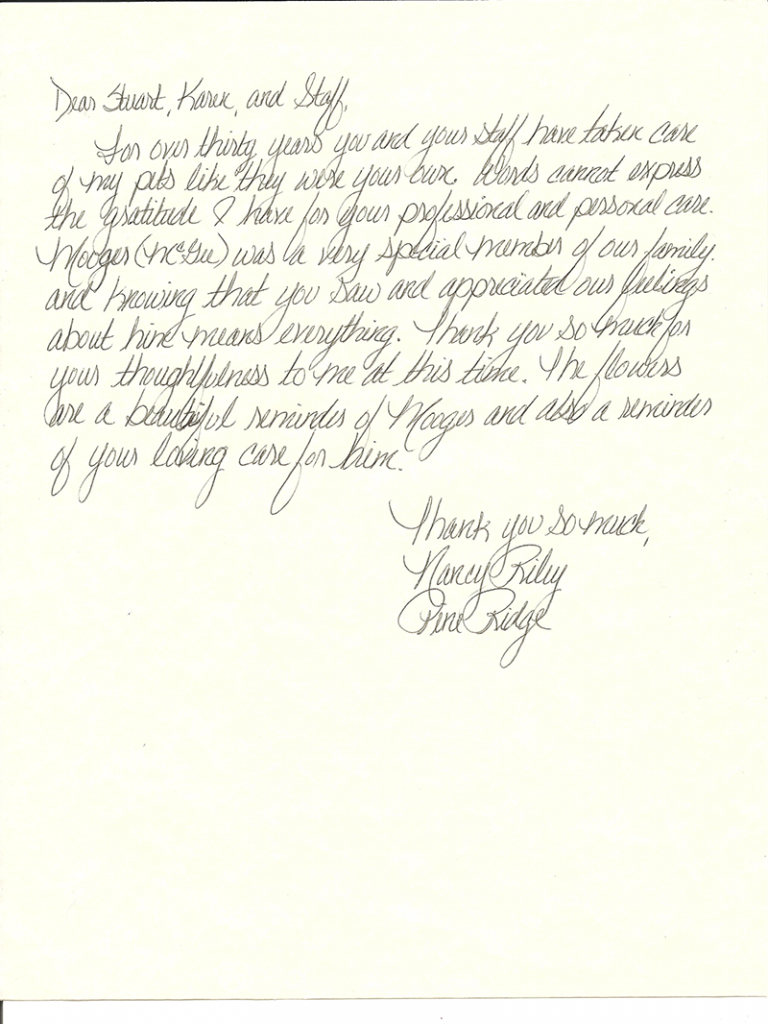 Dear Stuart, Karen, and Staff,
For over thirty years you and your staff have taken care
of my pets like they were your own. Words cannot express
the gratitude I have for your professional and personal care.
Mooges (McGee) was a very special member of our family.
and knowing that you saw and appreciated our feelings
about him means everything. Thank you so much for
your thoughtfulness to me at this time. The flowers
are a beautiful reminder of Mooges and also a reminder
of your loving care for him.
Thank you so much,
Nancy Riley
Pine Ridge